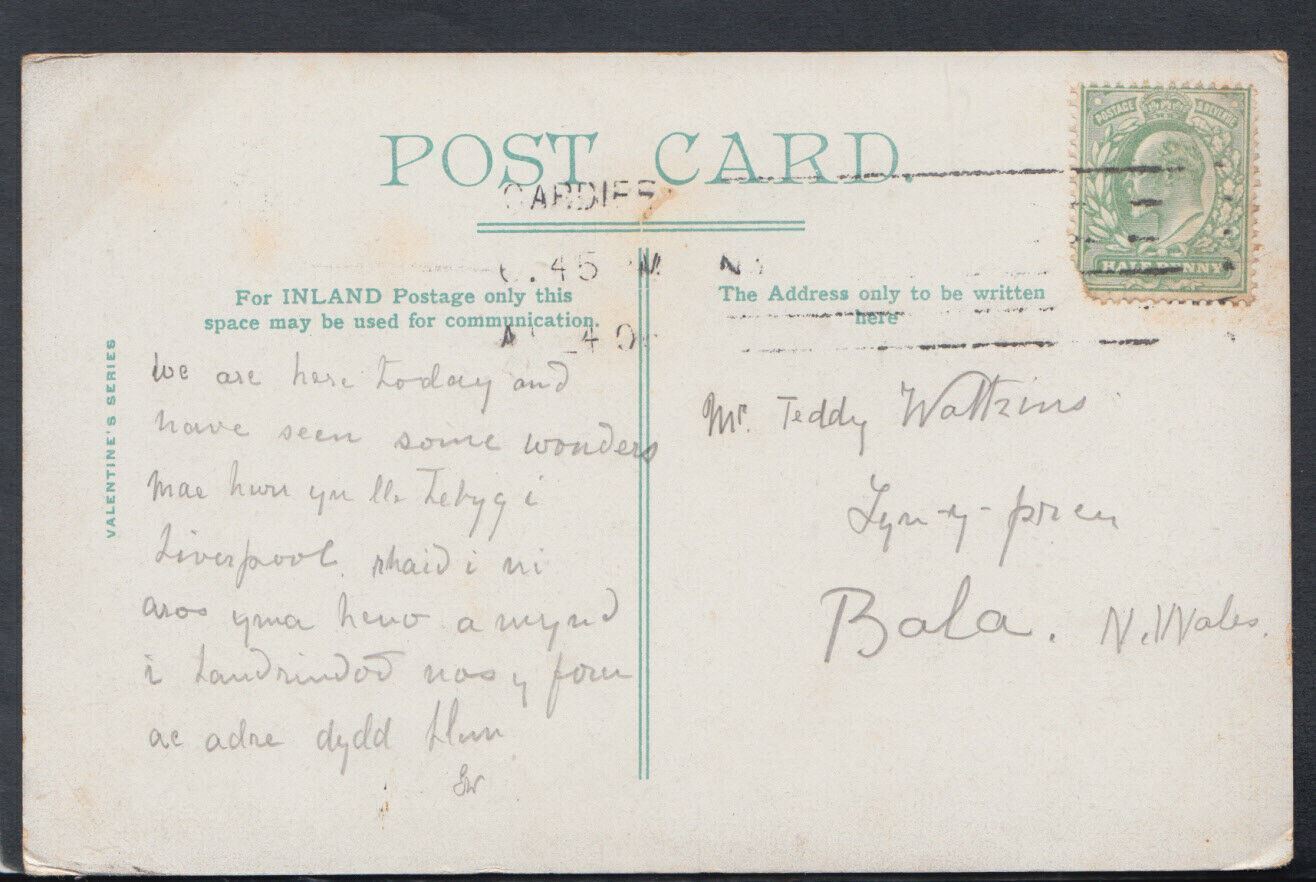 POST CARD.
CARDIFF
.45 M
For INLAND Postage only this
space may be used for communication.
The Address only to be written
here
POSTAGE & REVENUE
HALF PENNY
VALENTINE'S SERIES
We are here today and
have seen some wonders
Mae hwn yn lle tebyg i
Liverpool. rhaid i ni
aros yma heno a mynd
i Landrindod nos y foru
ac adre dydd Llun
GW
Mr. Teddy Watkins
Tyn-y-pren
Bala. N. Wales.